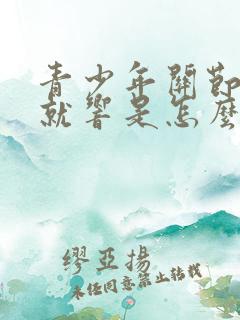 青少年關節
就響是怎麼
繆亞揚
未經同意禁止轉載